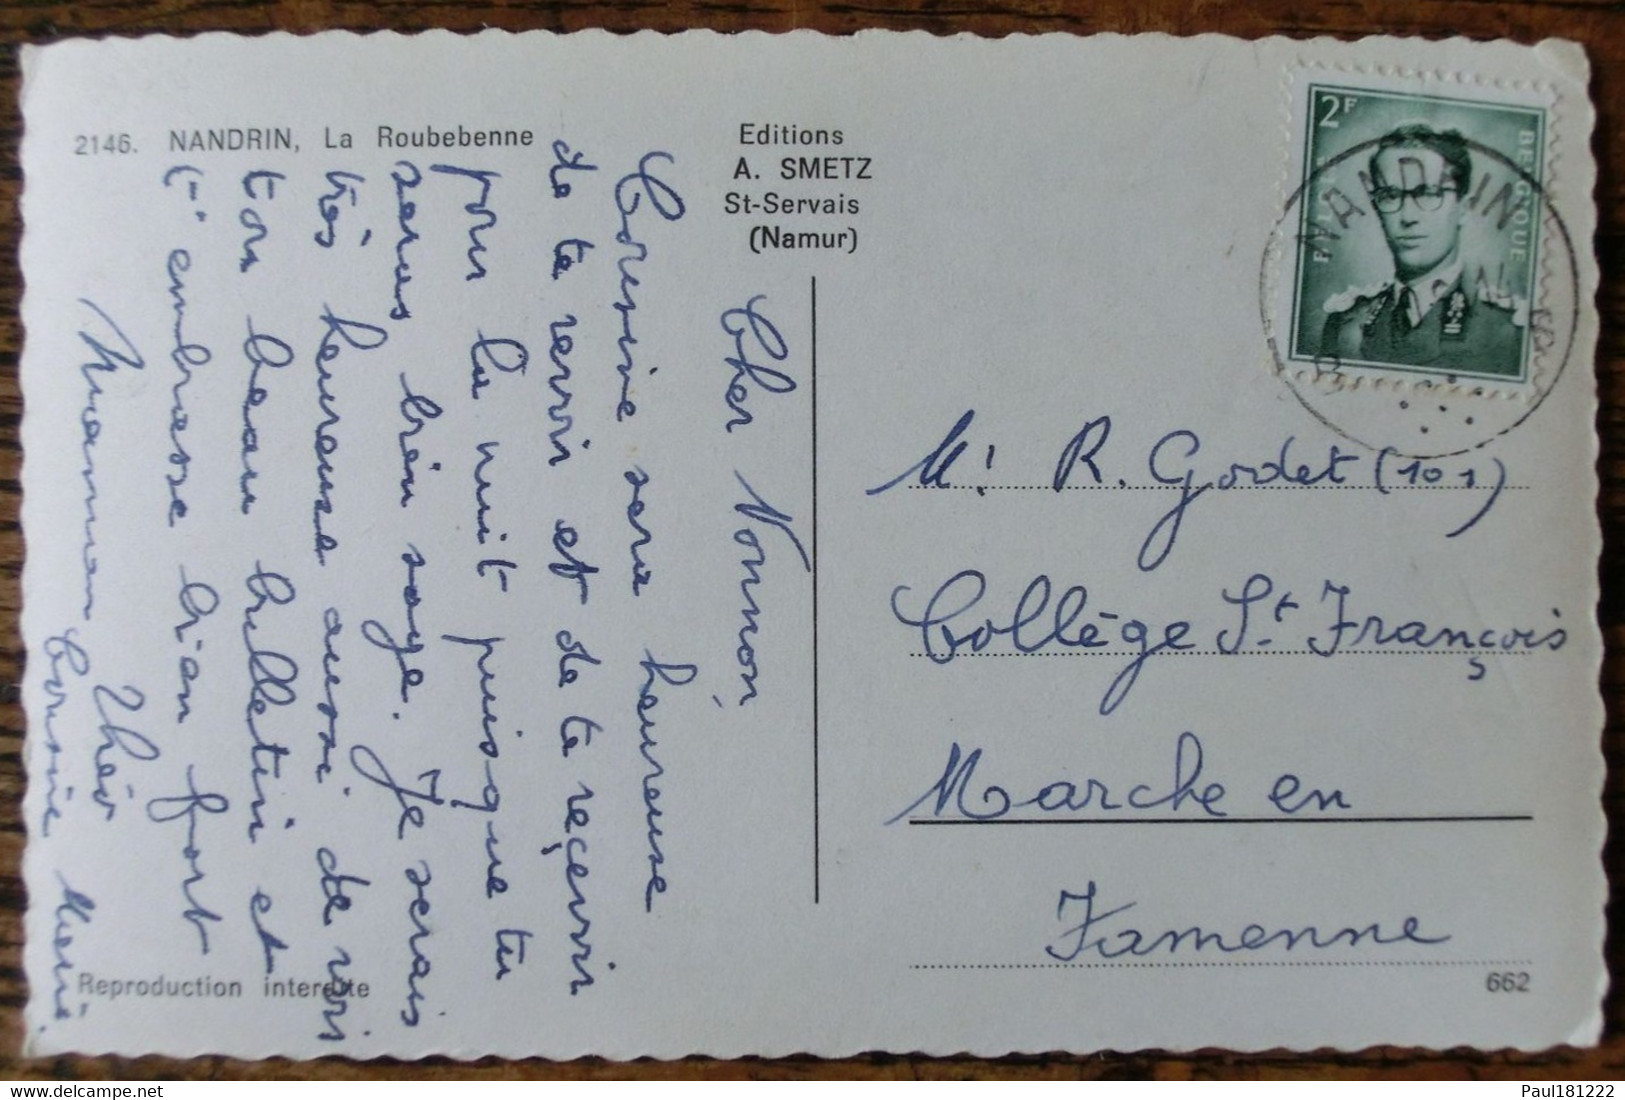 2146. NANDRIN, La Roubebenne
Editions
A. SMETZ
St-Servais
(Namur)
2F
BELGIQUE
NANDRIN
Cher Nonnon,
Cousine sera heureuse
de te revoir et de te reçevoir
pour la nuit puisque tu
seras bien sage. Je serais
très heureuse aussi de voir
ton beau bulletin et
t'embrasse bien fort
Maman Théo
Cousine Mimi.
Mr R. Godet (101)
Collège St François
Marche en
Famenne
Reproduction interdite
662
delcampe.net
Paul181222